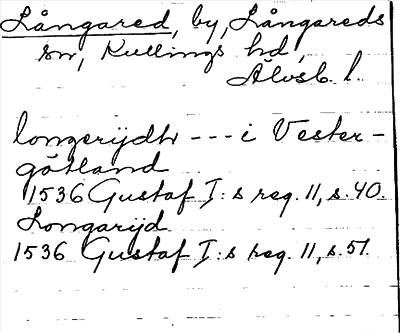 Långared, by, Långareds
sn, Kullings hd,
Älvsb. l.
longerijdh --- i Vester-
götland
1536 Gustaf I:s reg. 11, s. 40.
Longarijd
1536 Gustaf I:s reg. 11, s. 51.